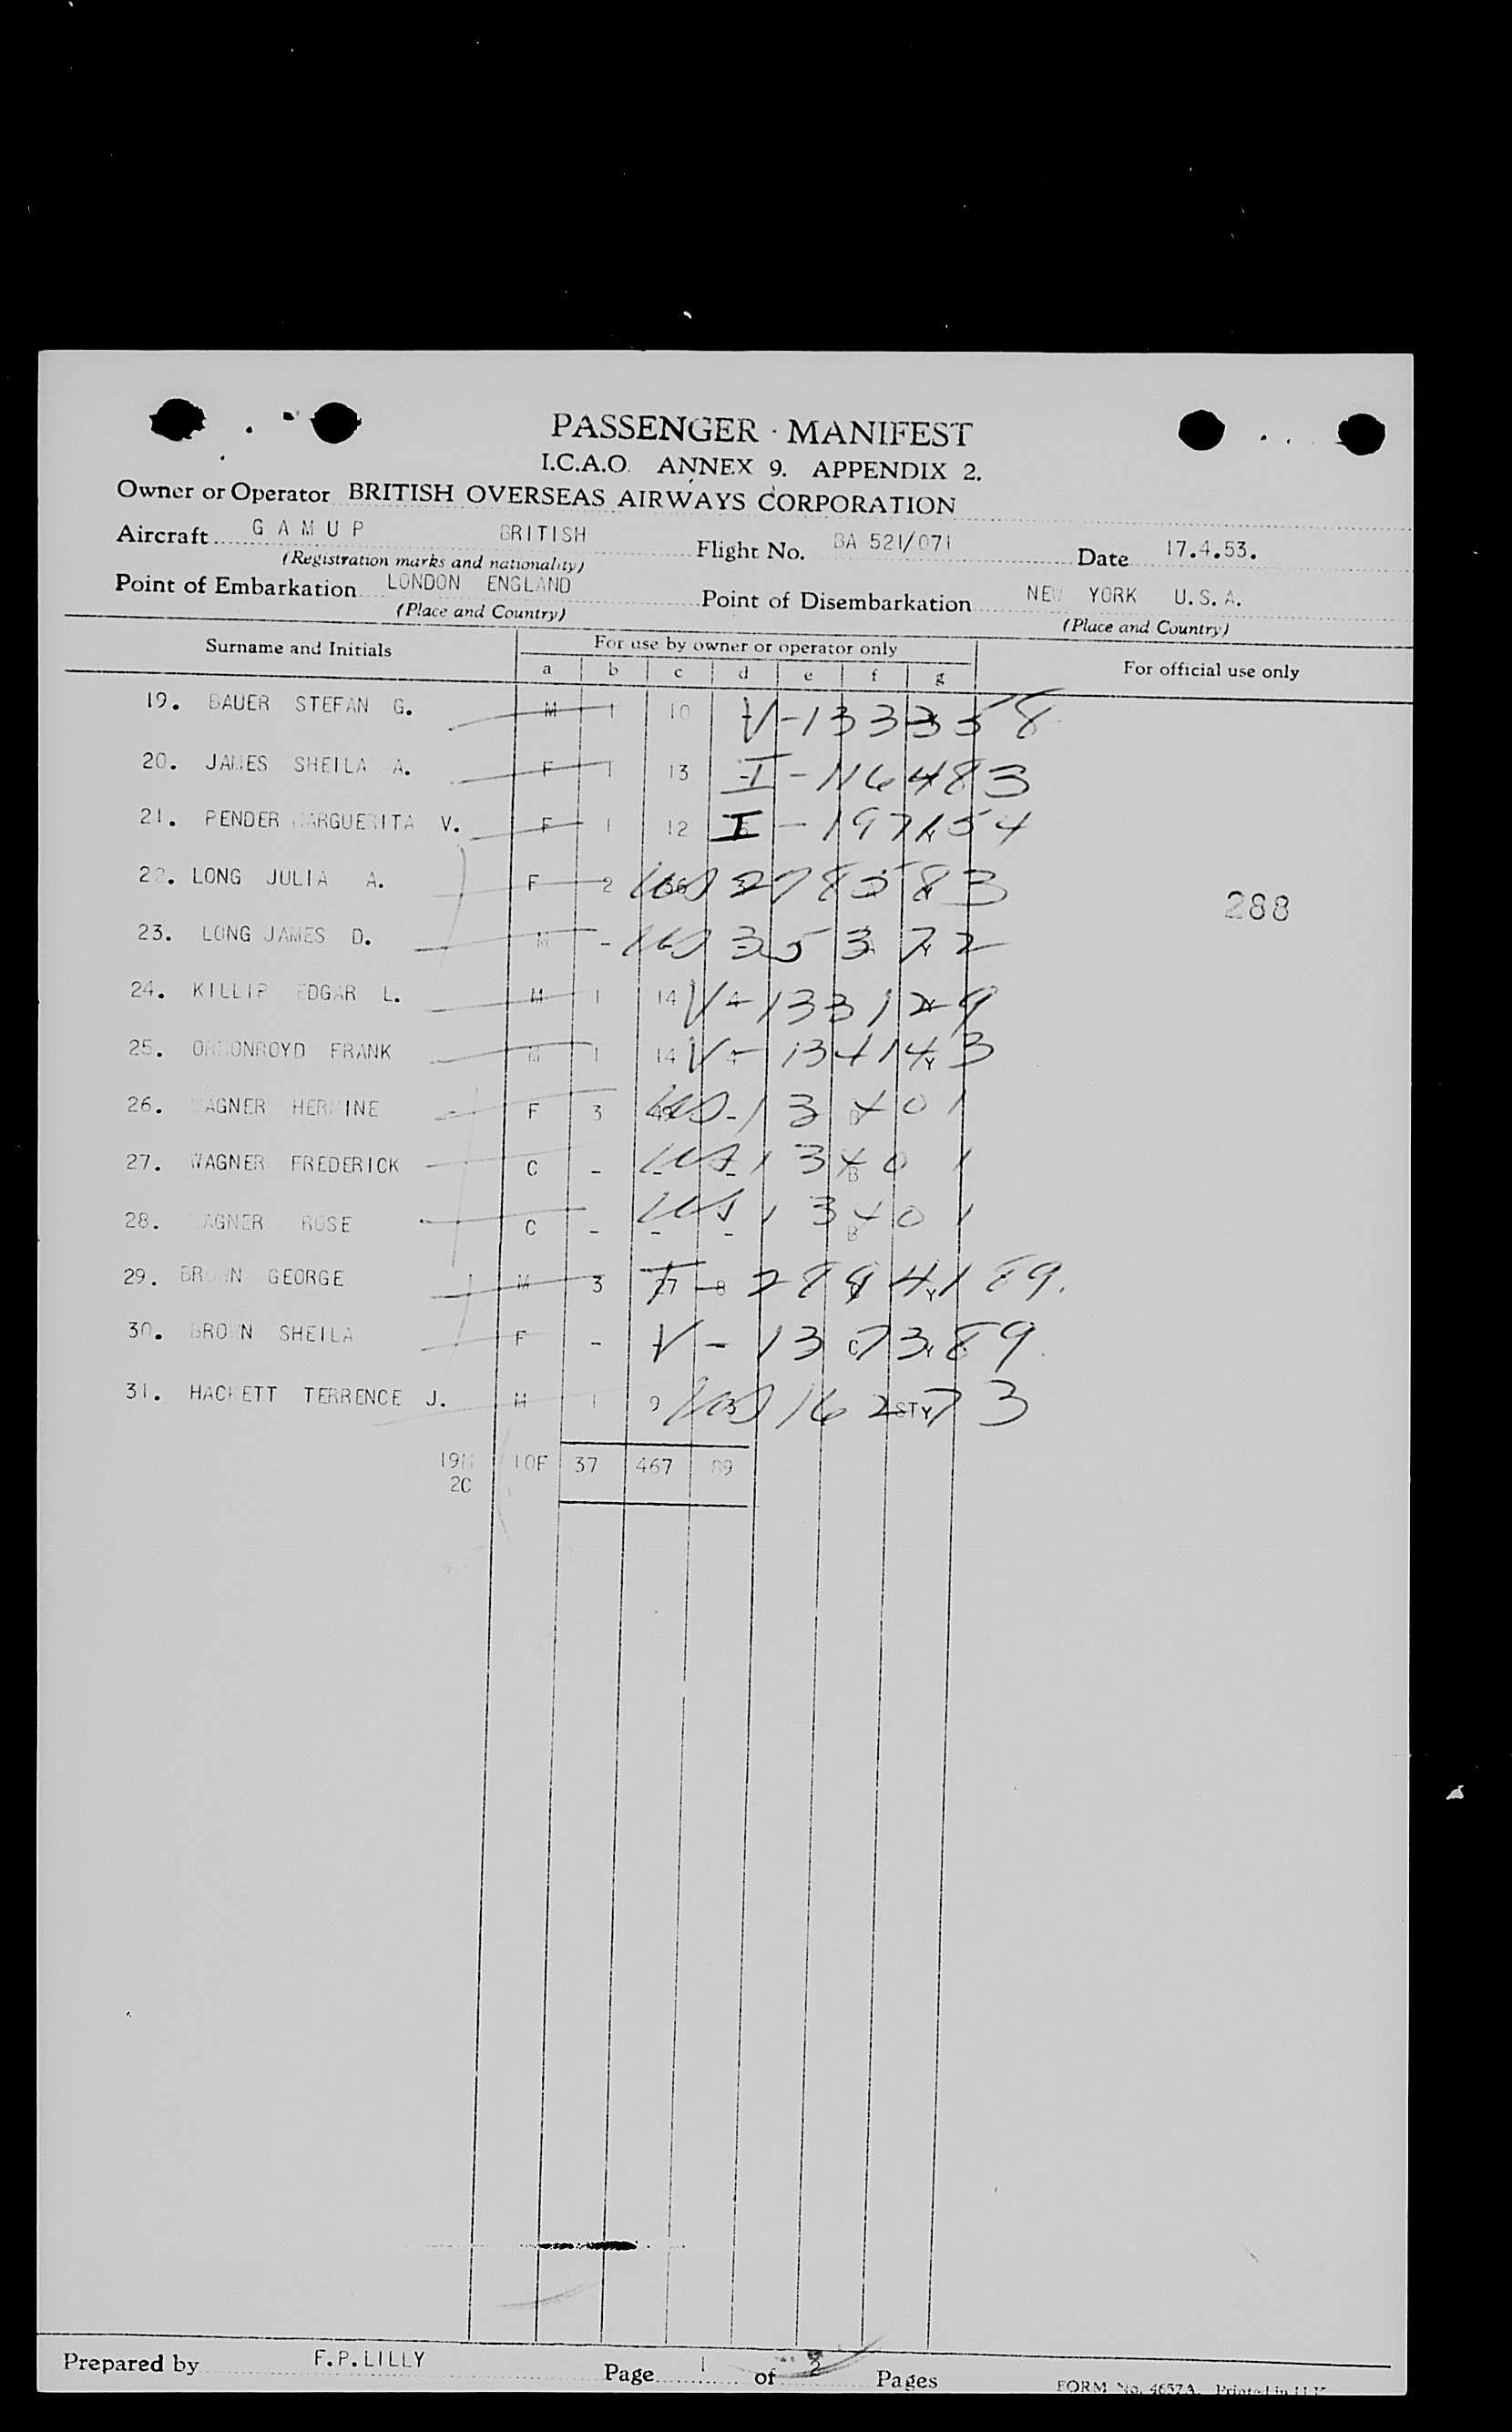 PASSENGER · MANIFEST
I.C.A.O. ANNEX 9. APPENDIX 2.
Owner or Operator BRITISH OVERSEAS AIRWAYS CORPORATION
Aircraft G A M U P BRITISH Flight No. BA 521/071 Date 17.4.53.
(Registration marks and nationality)
Point of Embarkation LONDON ENGLAND Point of Disembarkation NEW YORK U.S.A.
(Place and Country) (Place and Country)
Surname and Initials For use by owner or operator only For official use only
a b c d e f g
19. BAUER STEFAN G. M 1 10 V-1333358
20. JAMES SHEILA A. F 1 13 I-116483
21. PENDER MARGUERITA V. F 1 12 I-197154
22. LONG JULIA A. F 2 US 278583
288
23. LONG JAMES D. M - US 35372
24. KILLIP EDGAR L. M 1 14 V-133129
25. ORMONROYD FRANK M 1 14 V-134143
26. WAGNER HERMINE F 3 US 13401
27. WAGNER FREDERICK C - US 13401
28. WAGNER ROSE C - US 13401
29. BROWN GEORGE M 3 27 8
30. BROWN SHEILA F - V-137389.
31. HACKETT TERRENCE J. M 1 9 US 16273
19M 10F 37 467 89
2C
Prepared by F.P.LILLY Page 1 of 2 Pages FORM No. 4657A. Printed in U.K.